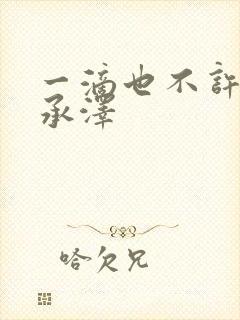 一滴也不許
承澤
哈欠兄